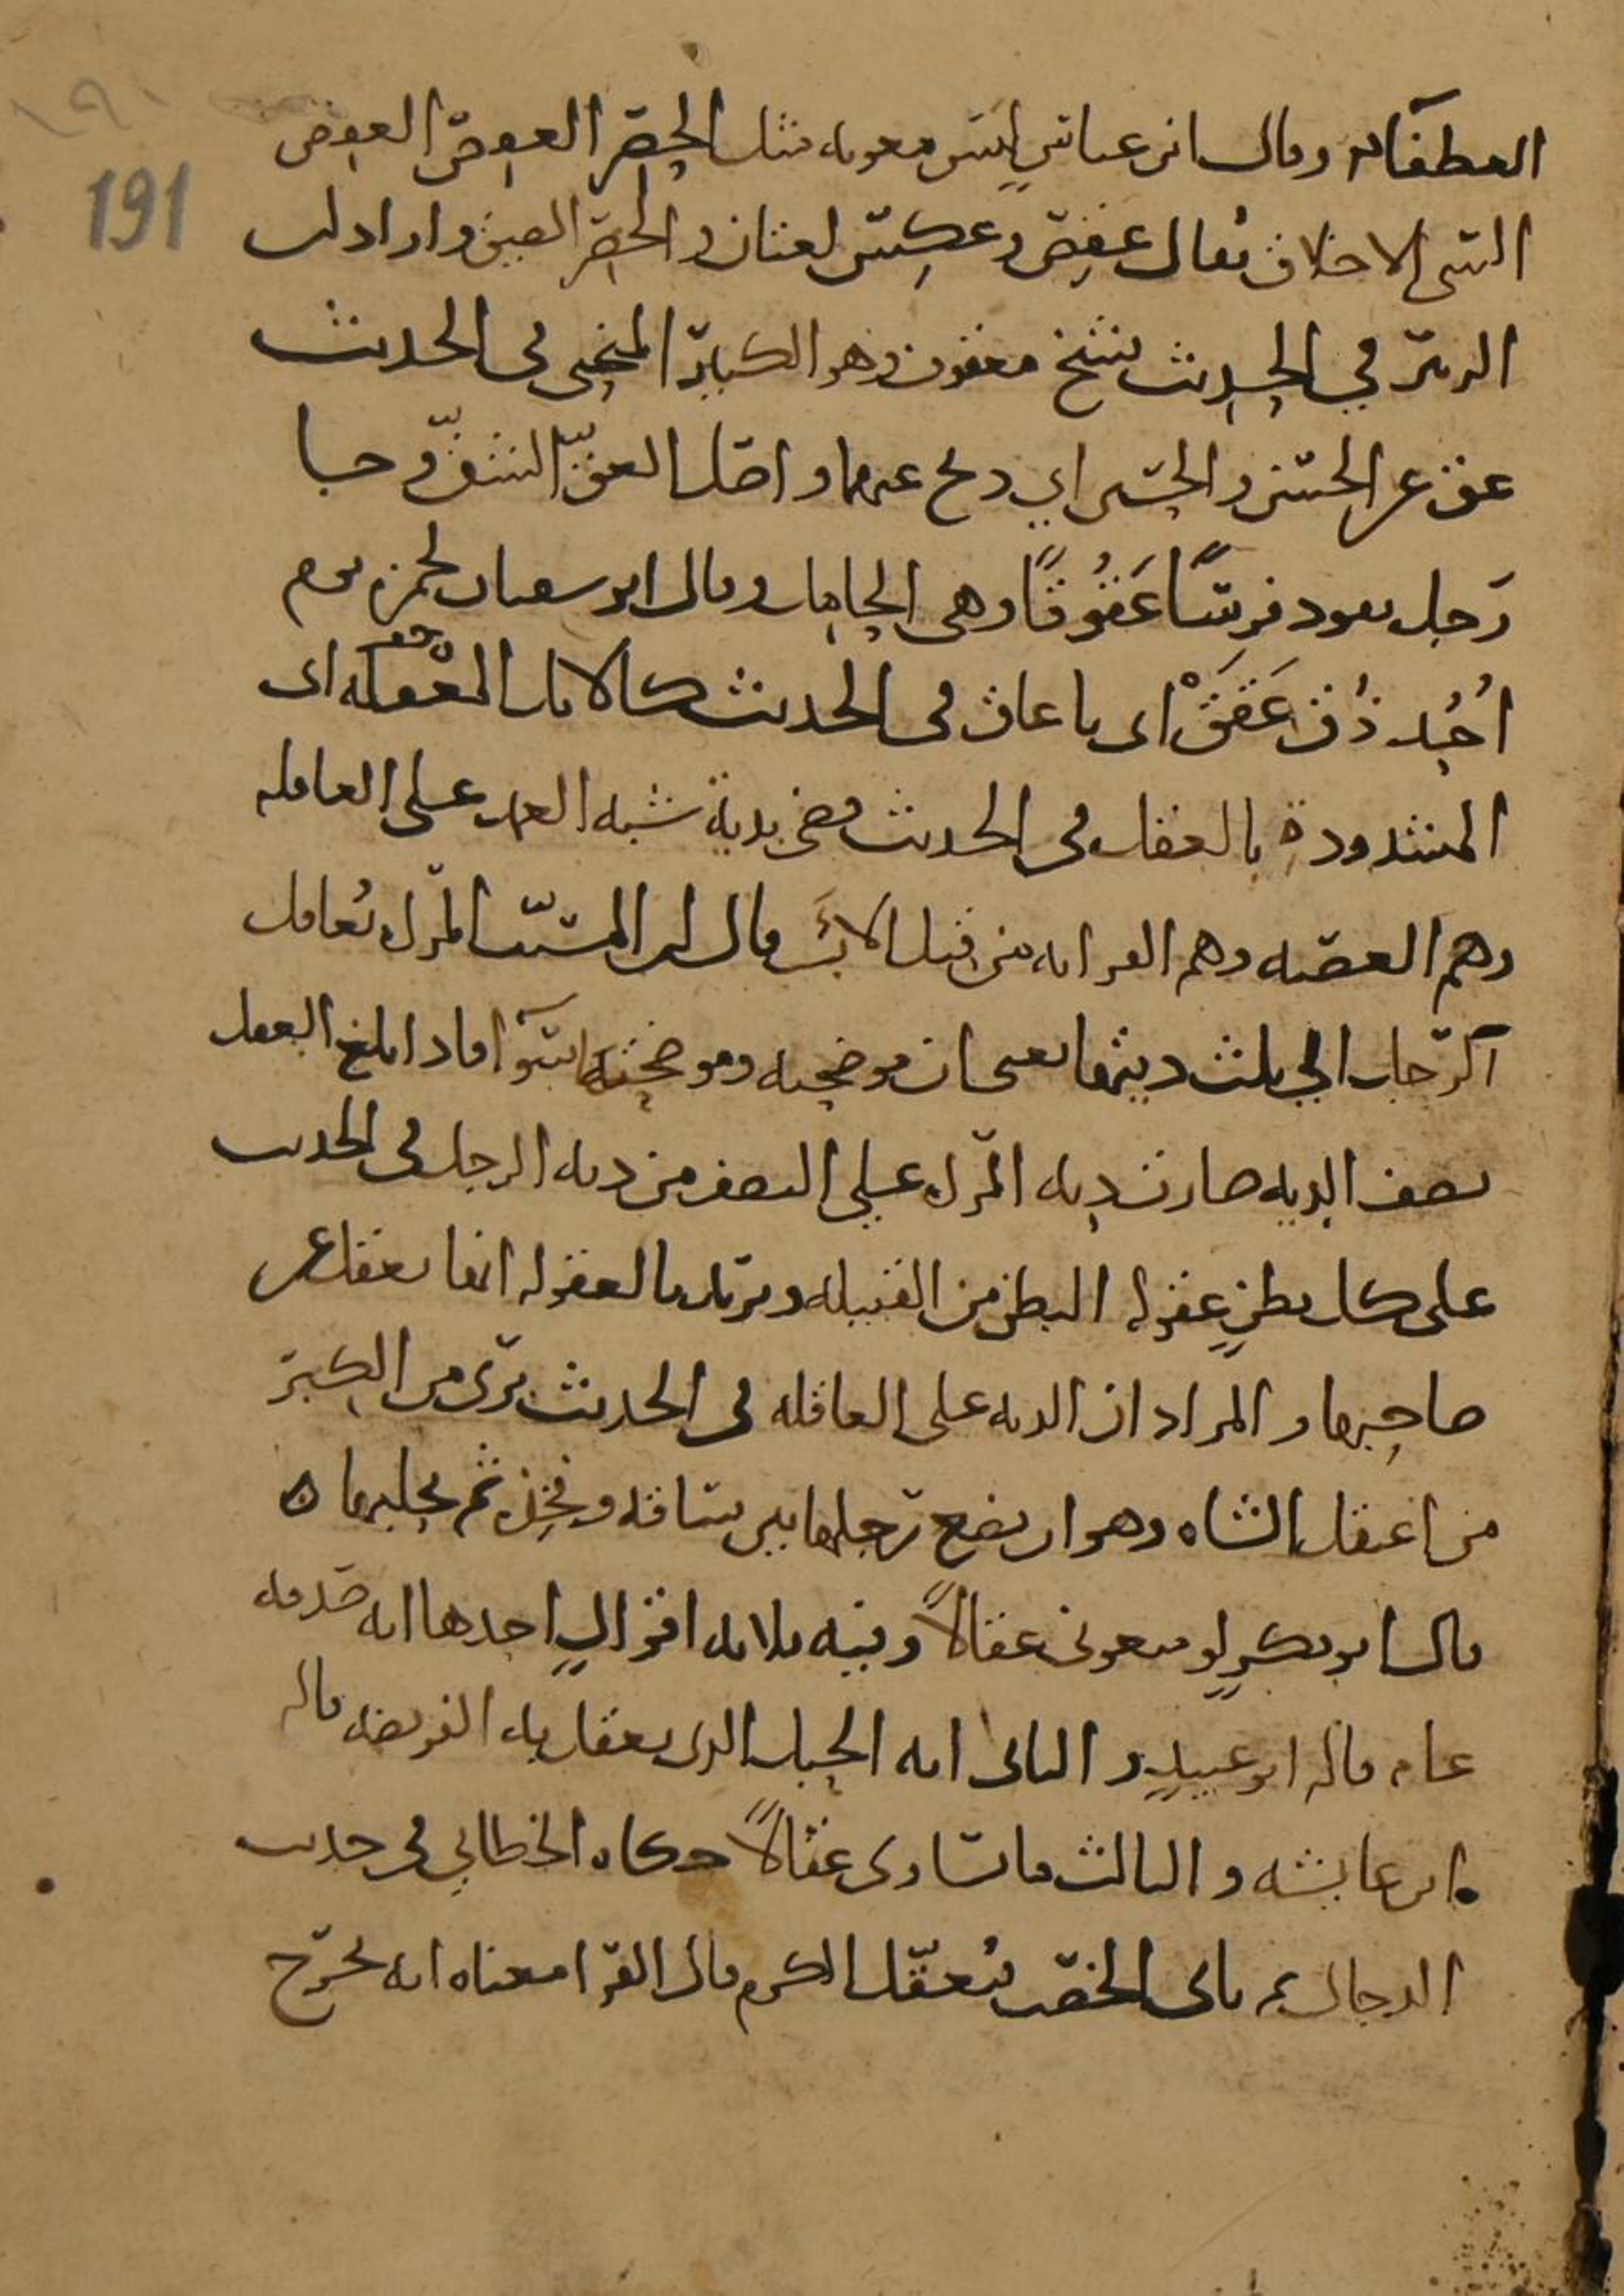 191
المعطفان وقال ابن عباس ليس معويه مثل الحصر العقص العقص
السى الاخلاق يقال عقص وعكس لغتان والحصر الضيق واراد ابن
الزبير في الحديث شيخ معقوف وهو الكبير المنحني في الحديث
عق عن الحسن والحسين اي ذبح عنهما واصل العق الشق وجا
رجل يقود فرسًا عَقُوقًا وهي الحامل وقال ابو سفيان لحمزة يوم
احُد ذُق عُقَقْ اي يا عاق في الحديث كالابل المعقله اي
المشدودة بالعقل في الحديث قضى بدية شبه العمد على العاقله
وهم العصبه وهم القرابه من قبل الاب قال ابن المسيب المرأه تُعاقل
الرجل الى ثلث ديتها يعني ان موضحته وموضحتها سوآ فاذا بلغ العقل
نصف الديه صارت ديه المرأه على النصف من ديه الرجل في الحديث
على كل بطنٍ عقوله البطن من القبيله ويريد بالعقوله انها تعقل عن
صاحبها والمراد ان الديه على العاقله في الحديث برى من الكبر
من اعتقل الشاه وهو ان يضع رجلها بين ساقه وفخذه ثم يحلبها ه
قال ابو بكرٍ لو منعوني عقالًا وفيه ثلاثه اقوالٍ احدها انه صدقه
عام قاله ابو عبيدٍ والثاني انه الحبل الذي يعقل به الفريضه قاله
ابن عايشه والثالث ما يساوي عقالًا حكاه الخطابي في حديث
الدجال ثم ياتي الخصب فيُعقّل الكرم قال الفرا معناه انه يخرج